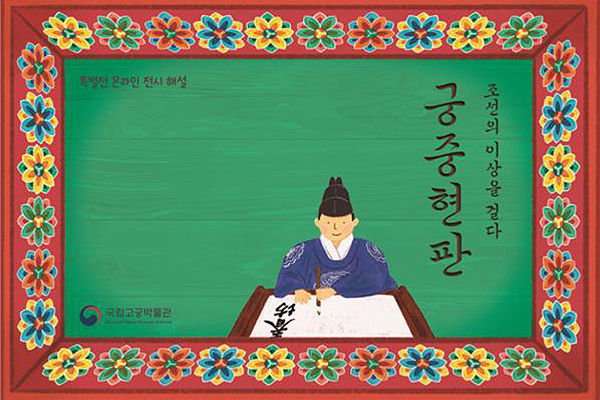 특별전 온라인 전시 해설
조선의 이상을 걸다
궁중현판
春坊
국립고궁박물관
National Palace Museum of Korea